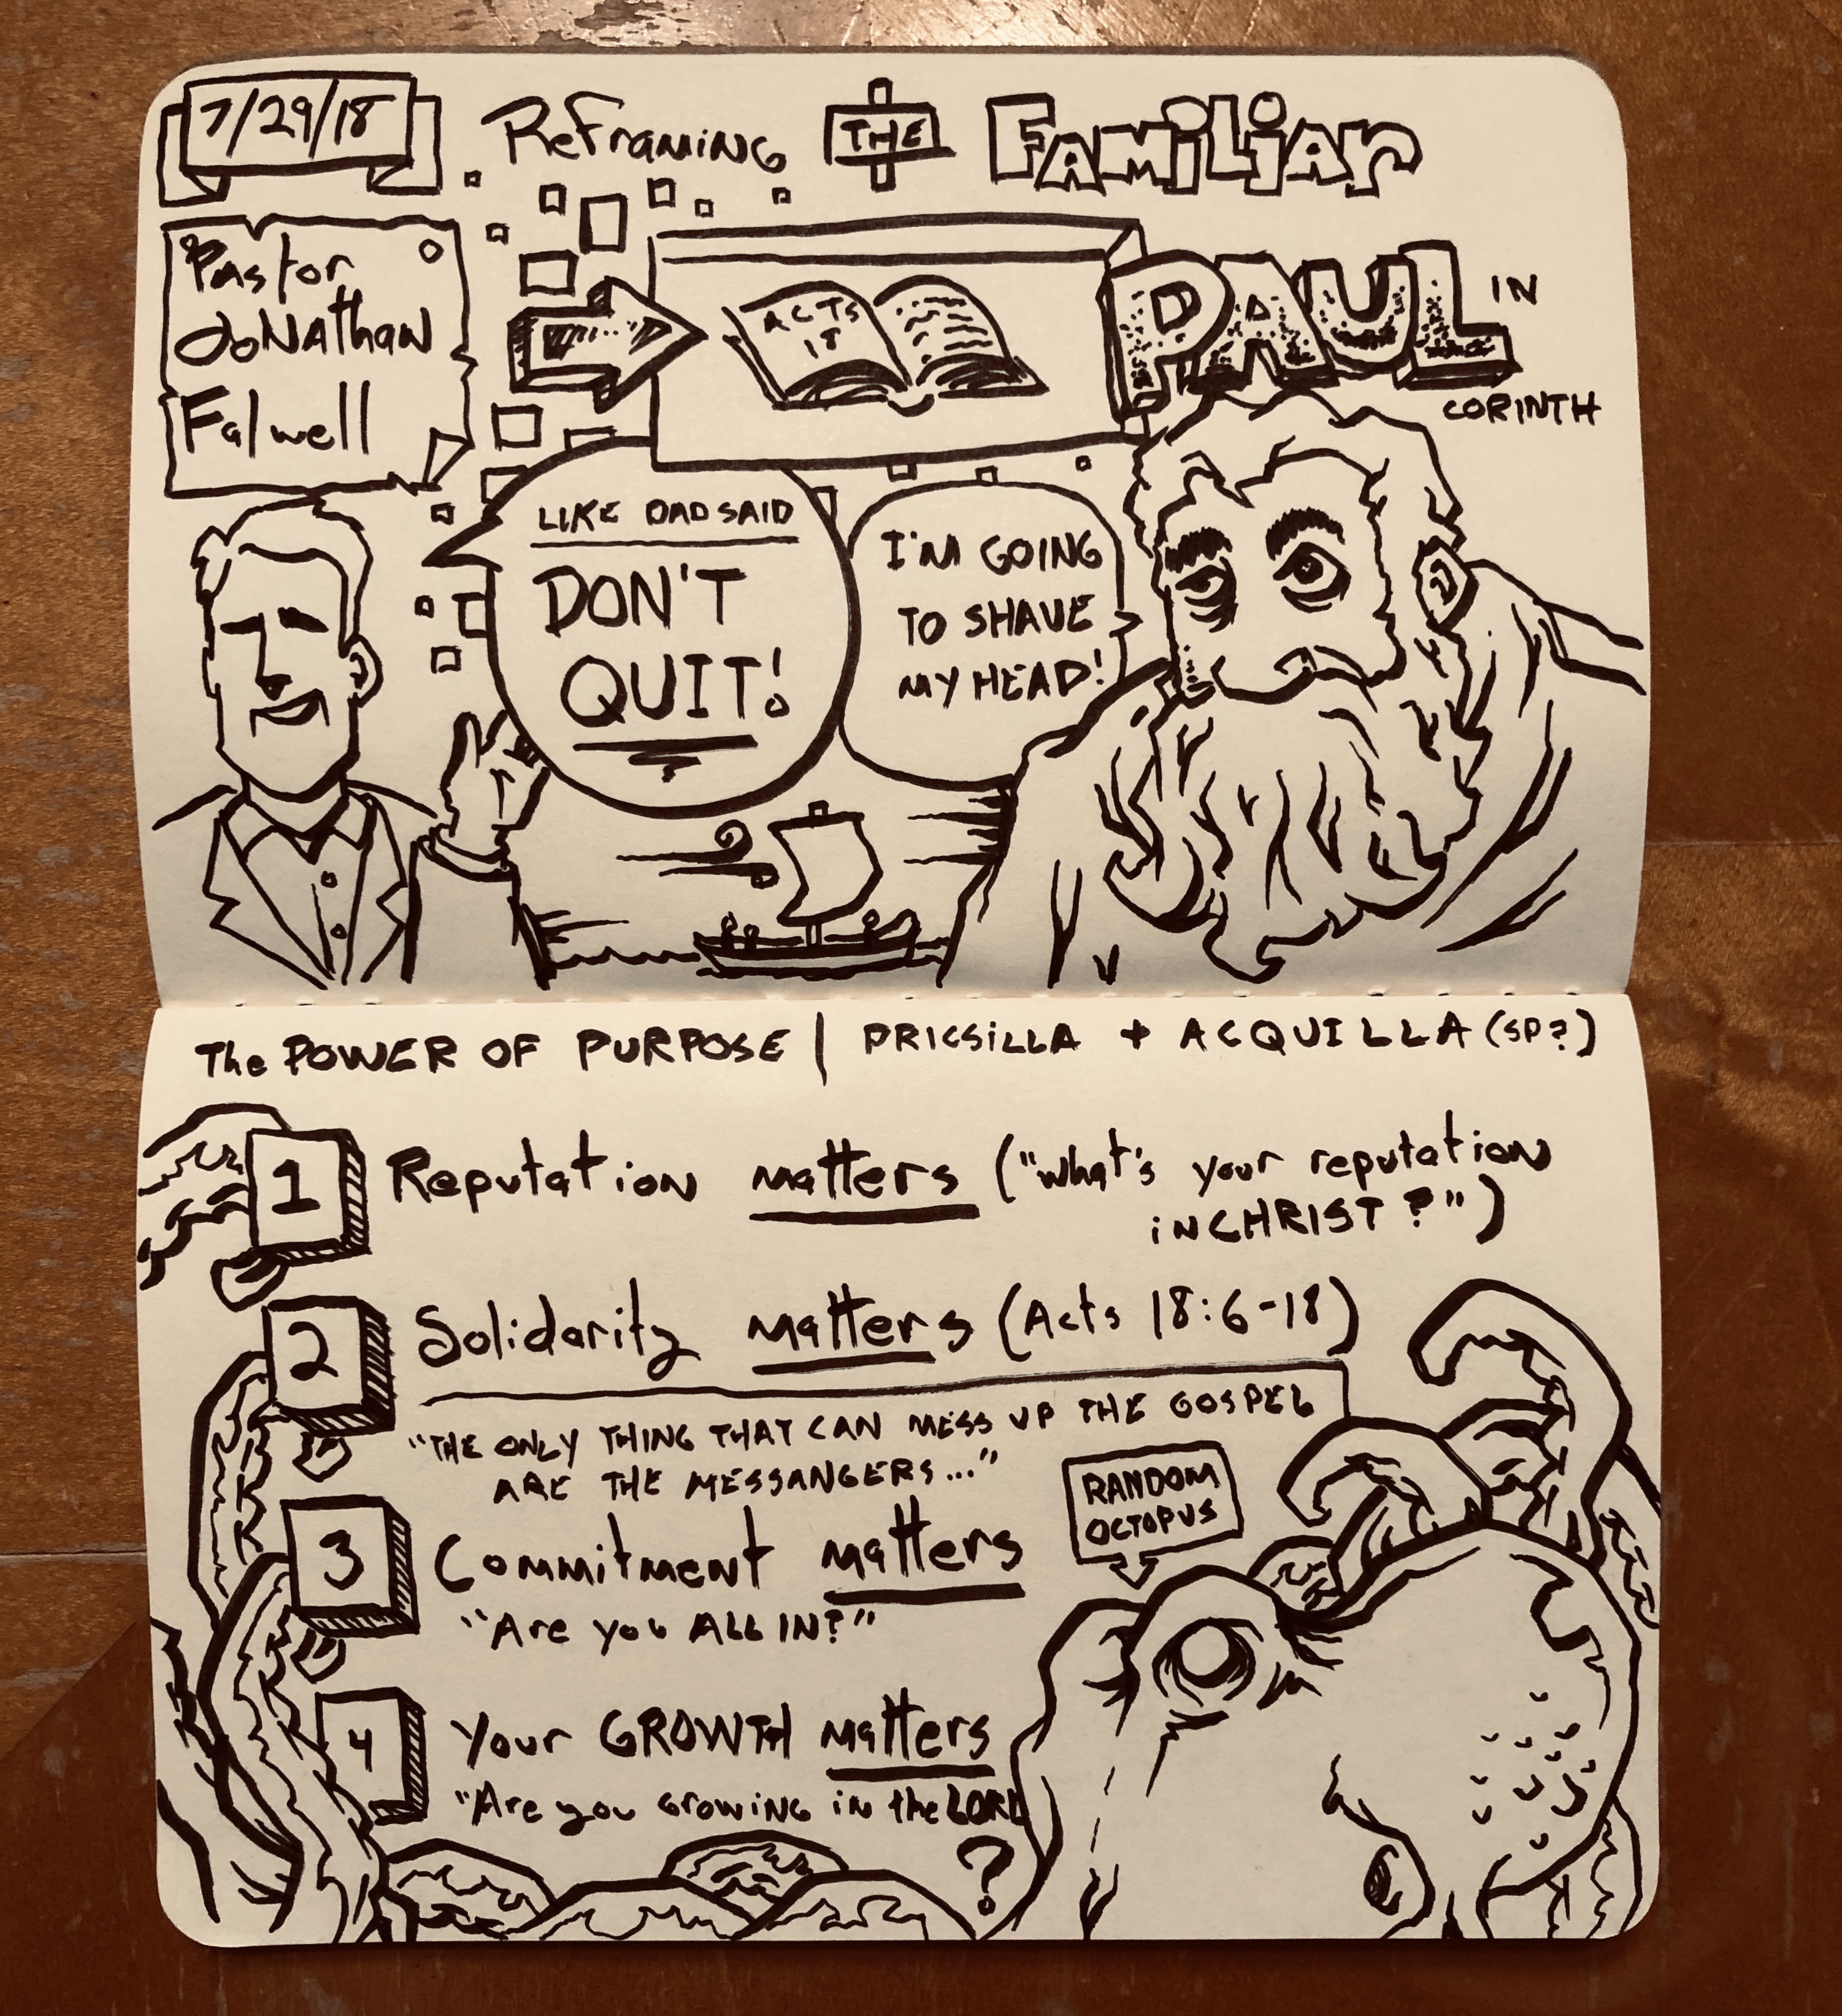 7/29/18
Reframing THE Familiar
Pastor
Jonathan
Falwell
ACTS
18
PAUL IN
CORINTH
LIKE DAD SAID
DON'T
QUIT!
I'M GOING
TO SHAVE
MY HEAD!
The POWER OF PURPOSE | PRICSILLA + ACQUILLA (SP?)
1 Reputation matters ("what's your reputation
in CHRIST?")
2 Solidarity matters (Acts 18:6-18)
"THE ONLY THING THAT CAN MESS UP THE GOSPEL
ARE THE MESSANGERS..."
RANDOM
OCTOPUS
3 Commitment matters
"Are you ALL IN?"
4 Your GROWTH matters
"Are you Growing in the LORD
?